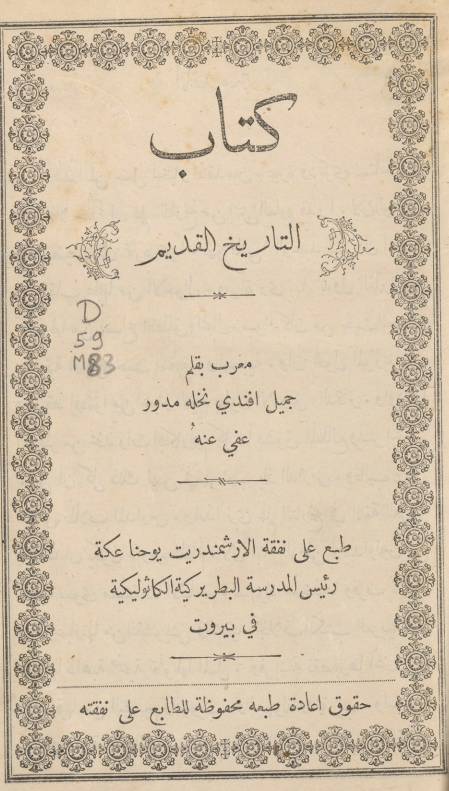 كتاب
التاريخ القديم
D
59
M83
معرب بقلم
جميل افندي نخله مدور
عفي عنهُ
طبع على نفقة الارشمندريت يوحنا عكة
رئيس المدرسة البطريركية الكاثوليكية
في بيروت
حقوق اعادة طبعه محفوظة للطابع على نفقته